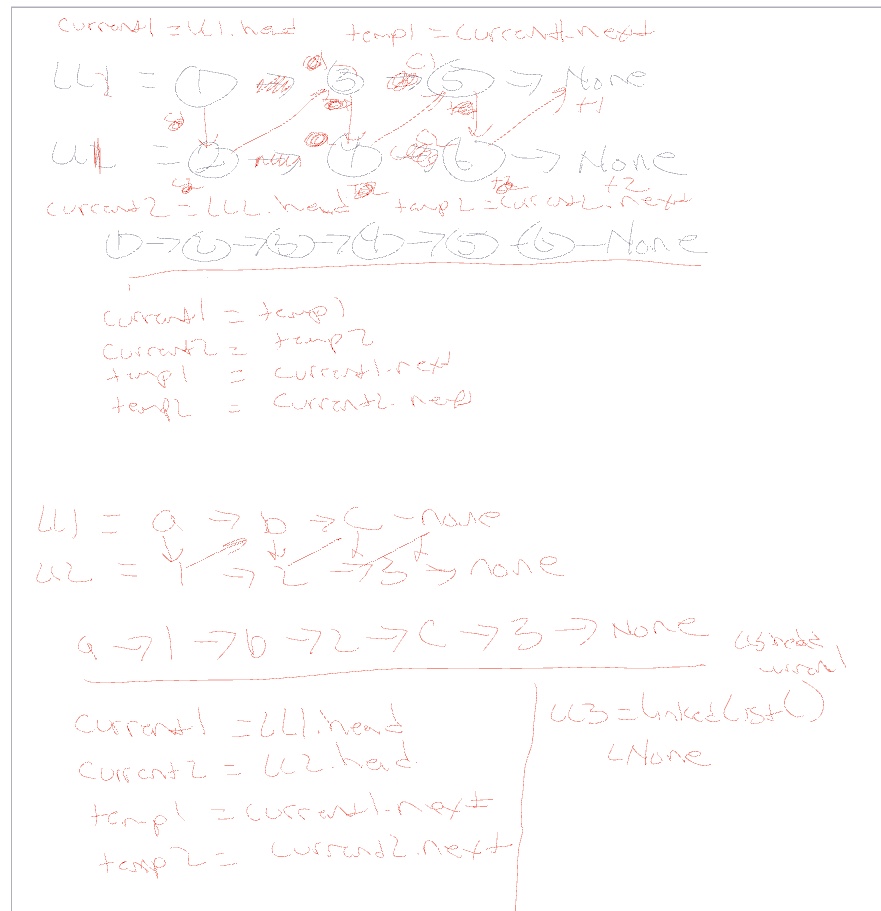 current1 = LL1.head temp1 = current1.next
LL1 = 1 3 5 → None
t1
LL2 = 2 4 6 → None
t2
current2 = LL2.head temp2 = current2.next
1 → 2 → 3 → 4 → 5 → 6 - None
current1 = temp1
current2 = temp2
temp1 = current1.next
temp2 = current2.next
LL1 = a → b → c - none
LL2 = 1 → 2 → 3 → none
a → 1 → b → 2 → c → 3 → None
current1 = LL1.head
current2 = LL2.head
temp1 = current1.next
temp2 = current2.next
LL3 = LinkedList()
None